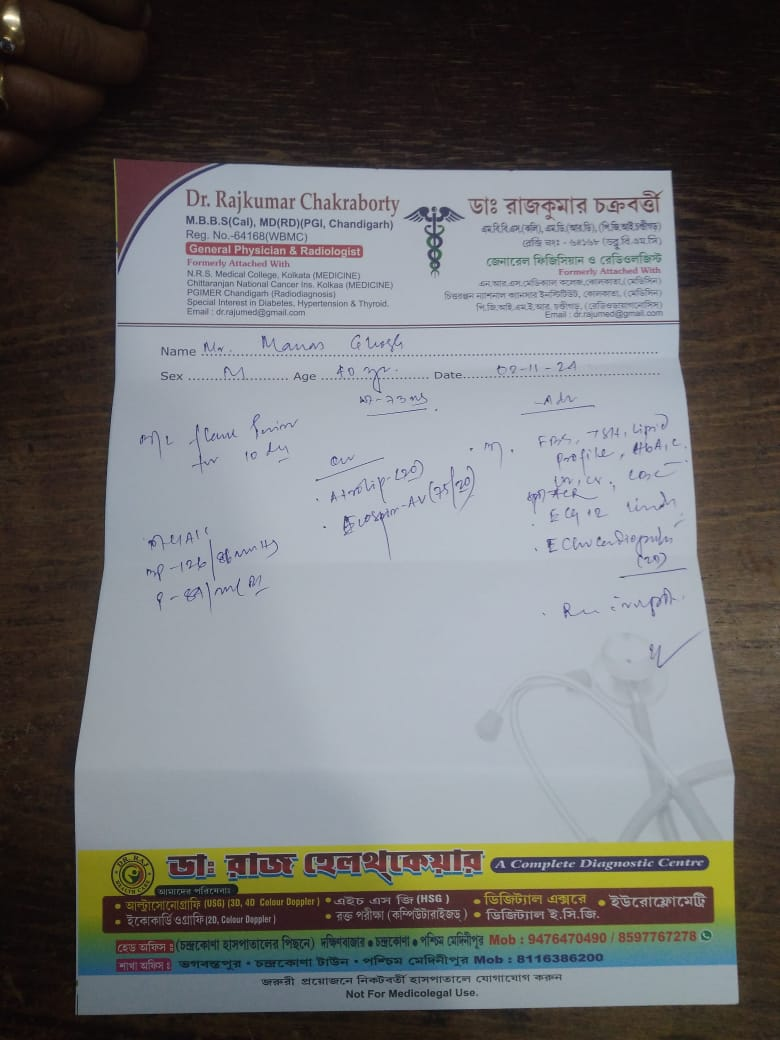 Dr. Rajkumar Chakraborty
M.B.B.S(Cal), MD(RD)(PGI, Chandigarh)
Reg. No.-64168(WBMC)
General Physician & Radiologist
Formerly Attached With
N.R.S. Medical College, Kolkata (MEDICINE)
Chittaranjan National Cancer Ins. Kolkaa (MEDICINE)
PGIMER Chandigarh (Radiodiagnosis)
Special Interest in Diabetes, Hypertension & Thyroid.
Email : dr.rajumed@gmail.com
ডাঃ রাজকুমার চক্রবর্ত্তী
এম.বি.বি.এস.(কলি), এম.ডি.(আর.ডি), (পি.জি.আই.চণ্ডীগড়)
রেজি নং - ৬৪১৬৮ (ডব্লু.বি.এম.সি)
জেনারেল ফিজিসিয়ান ও রেডিওলজিস্ট
Formerly Attached With
এন.আর.এস.মেডিক্যাল কলেজ,কোলকাতা, (মেডিসিন)
চিত্তরঞ্জন ন্যাশনাল ক্যানসার ইনস্টিটিউট, কোলকাতা, (মেডিসিন)
পি.জি.আই.এম.ই.আর. চণ্ডীগড়, (রেডিওডায়াগনোসিস)
Email : dr.rajumed@gmail.com
Name Mr. Manas Ghosh
Sex M Age 40 yr. Date 02-11-24
for 10
BP-126/86 mmHg
Atrolip-(20)
Ecosprin-AV (75/20)
Adv
FBS, TSH, Lipid
Profile, HbA1C
CBC
ECG 12
Echocardiography
(2D)
DR. RAJ
ডাঃ রাজ হেলথকেয়ার
A Complete Diagnostic Centre
আমাদের পরিষেবাঃ
• আল্ট্রাসোনোগ্রাফি (USG) (3D, 4D Colour Doppler) • এইচ এস জি (HSG) • ডিজিট্যাল এক্সরে • ইউরোফ্লোমেট্রি
• ইকোকার্ডিওগ্রাফি (2D, Colour Doppler) • রক্ত পরীক্ষা (কম্পিউটারাইজড) • ডিজিট্যাল ই.সি.জি.
হেড অফিস : (চন্দ্রকোণা হাসপাতালের পিছনে) দক্ষিণবাজার • চন্দ্রকোণা • পশ্চিম মেদিনীপুর Mob : 9476470490 / 8597767278
শাখা অফিস : ভগবন্তপুর • চন্দ্রকোণা টাউন • পশ্চিম মেদিনীপুর Mob : 8116386200
জরুরী প্রয়োজনে নিকটবর্তী হাসপাতালে যোগাযোগ করুন
Not For Medicolegal Use.